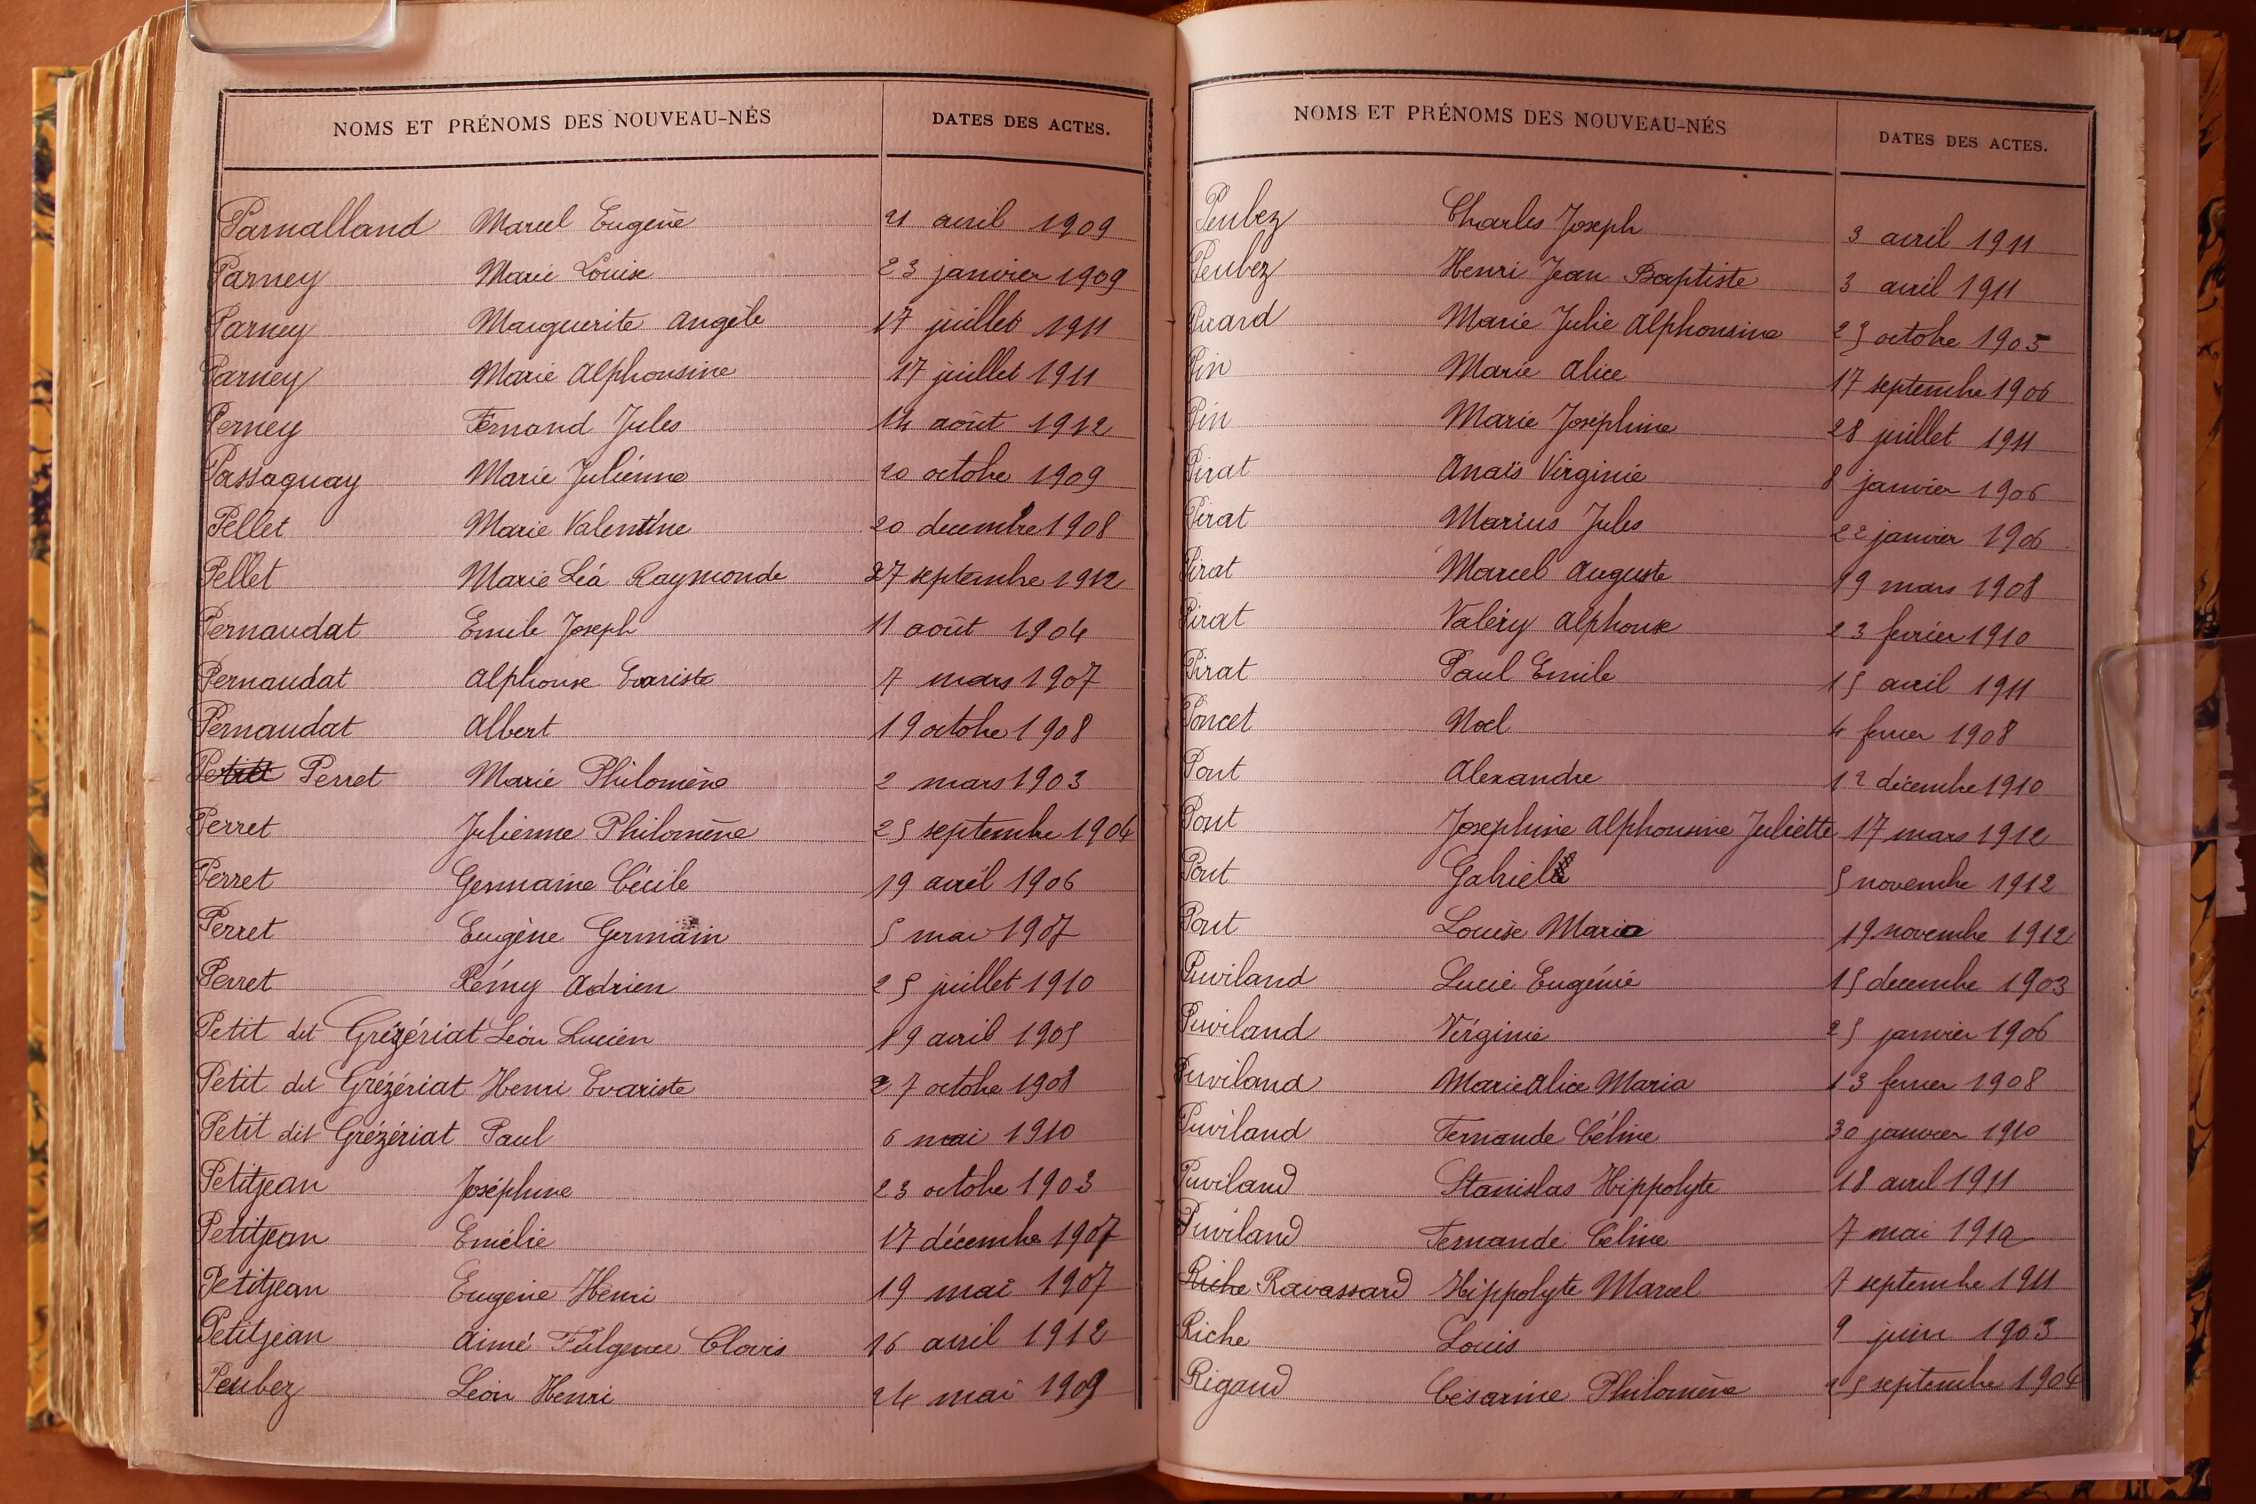 NOMS ET PRÉNOMS DES NOUVEAU-NÉS DATES DES ACTES.
Parnalland Marcel Eugène 21 avril 1909
Parney Marie Louise 23 janvier 1909
Parney Marguerite Angèle 17 juillet 1911
Parney Marie Alphonsine 17 juillet 1911
Perney Fernand Jules 14 août 1912
Passaquay Marie Julienne 20 octobre 1909
Pellet Marie Valentine 20 decembre 1908
Pellet Marie Léa Raymonde 27 septembre 1912
Pernaudat Emile Joseph 11 août 1904
Pernaudat Alphonse Evariste 7 mars 1907
Pernaudat Albert 19 octobre 1908
Perret Marie Philomène 2 mars 1903
Perret Julienne Philomène 25 septembre 1904
Perret Germaine Cécile 19 avril 1906
Perret Eugène Germain 5 mai 1907
Perret Rémy Adrien 25 juillet 1910
Petit dit Grézériat Léon Lucien 19 avril 1905
Petit dit Grézériat Henri Evariste 27 octobre 1908
Petit dit Grézériat Paul 6 mai 1910
Petitjean Joséphine 23 octobre 1903
Petitjean Emélie 17 décembre 1907
Petitjean Eugène Henri 19 mai 1907
Petitjean Aimé Fulgence Clovis 16 avril 1912
Peubez Léon Henri 24 mai 1909
NOMS ET PRÉNOMS DES NOUVEAU-NÉS DATES DES ACTES.
Peubez Charles Joseph 3 avril 1911
Peubez Henri Jean Baptiste 3 avril 1911
Marie Julie Alphonsine 25 octobre 1905
Pin Marie Alice 17 septembre 1906
Pin Marie Joséphine 28 juillet 1911
Pirat Anaïs Virginie 8 janvier 1906
Pirat Marius Jules 22 janvier 1906
Pirat Marcel Auguste 19 mars 1908
Pirat Valéry Alphonse 23 fevrier 1910
Pirat Paul Emile 15 avril 1911
Poncet Noel 4 fevrier 1908
Pont Alexandre 12 décembre 1910
Pont Josephine Alphonsine Juliette 17 mars 1912
Pont Gabriel 5 novembre 1912
Pont Louise Maria 19 novembre 1912
Puviland Lucie Eugénie 15 decembre 1903
Puviland Virginie 25 janvier 1906
Puviland Marie Alice Maria 13 fevrier 1908
Puviland Fernande Céline 30 janvier 1910
Puviland Stanislas Hippolyte 18 avril 1911
Puviland Fernande Céline 7 mai 1912
Riche Ravassard Hippolyte Marcel 7 septembre 1911
Riche Louis 9 juin 1903
Rigaud Césarine Philomène 25 septembre 1904